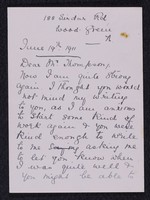 Wood Green
June 19th 1911
Dear Mr Thompson,
Now I am quite strong
again I thought you would
not mind my writing
to you, as I am anxious
to start some kind of
work again & you were
kind enough to write
to me asking me
to let you know when
I was quite well &
you might be able to